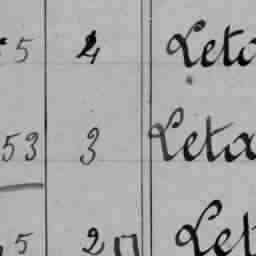 5 4 Leta
53 3 Leta
5 2 Let